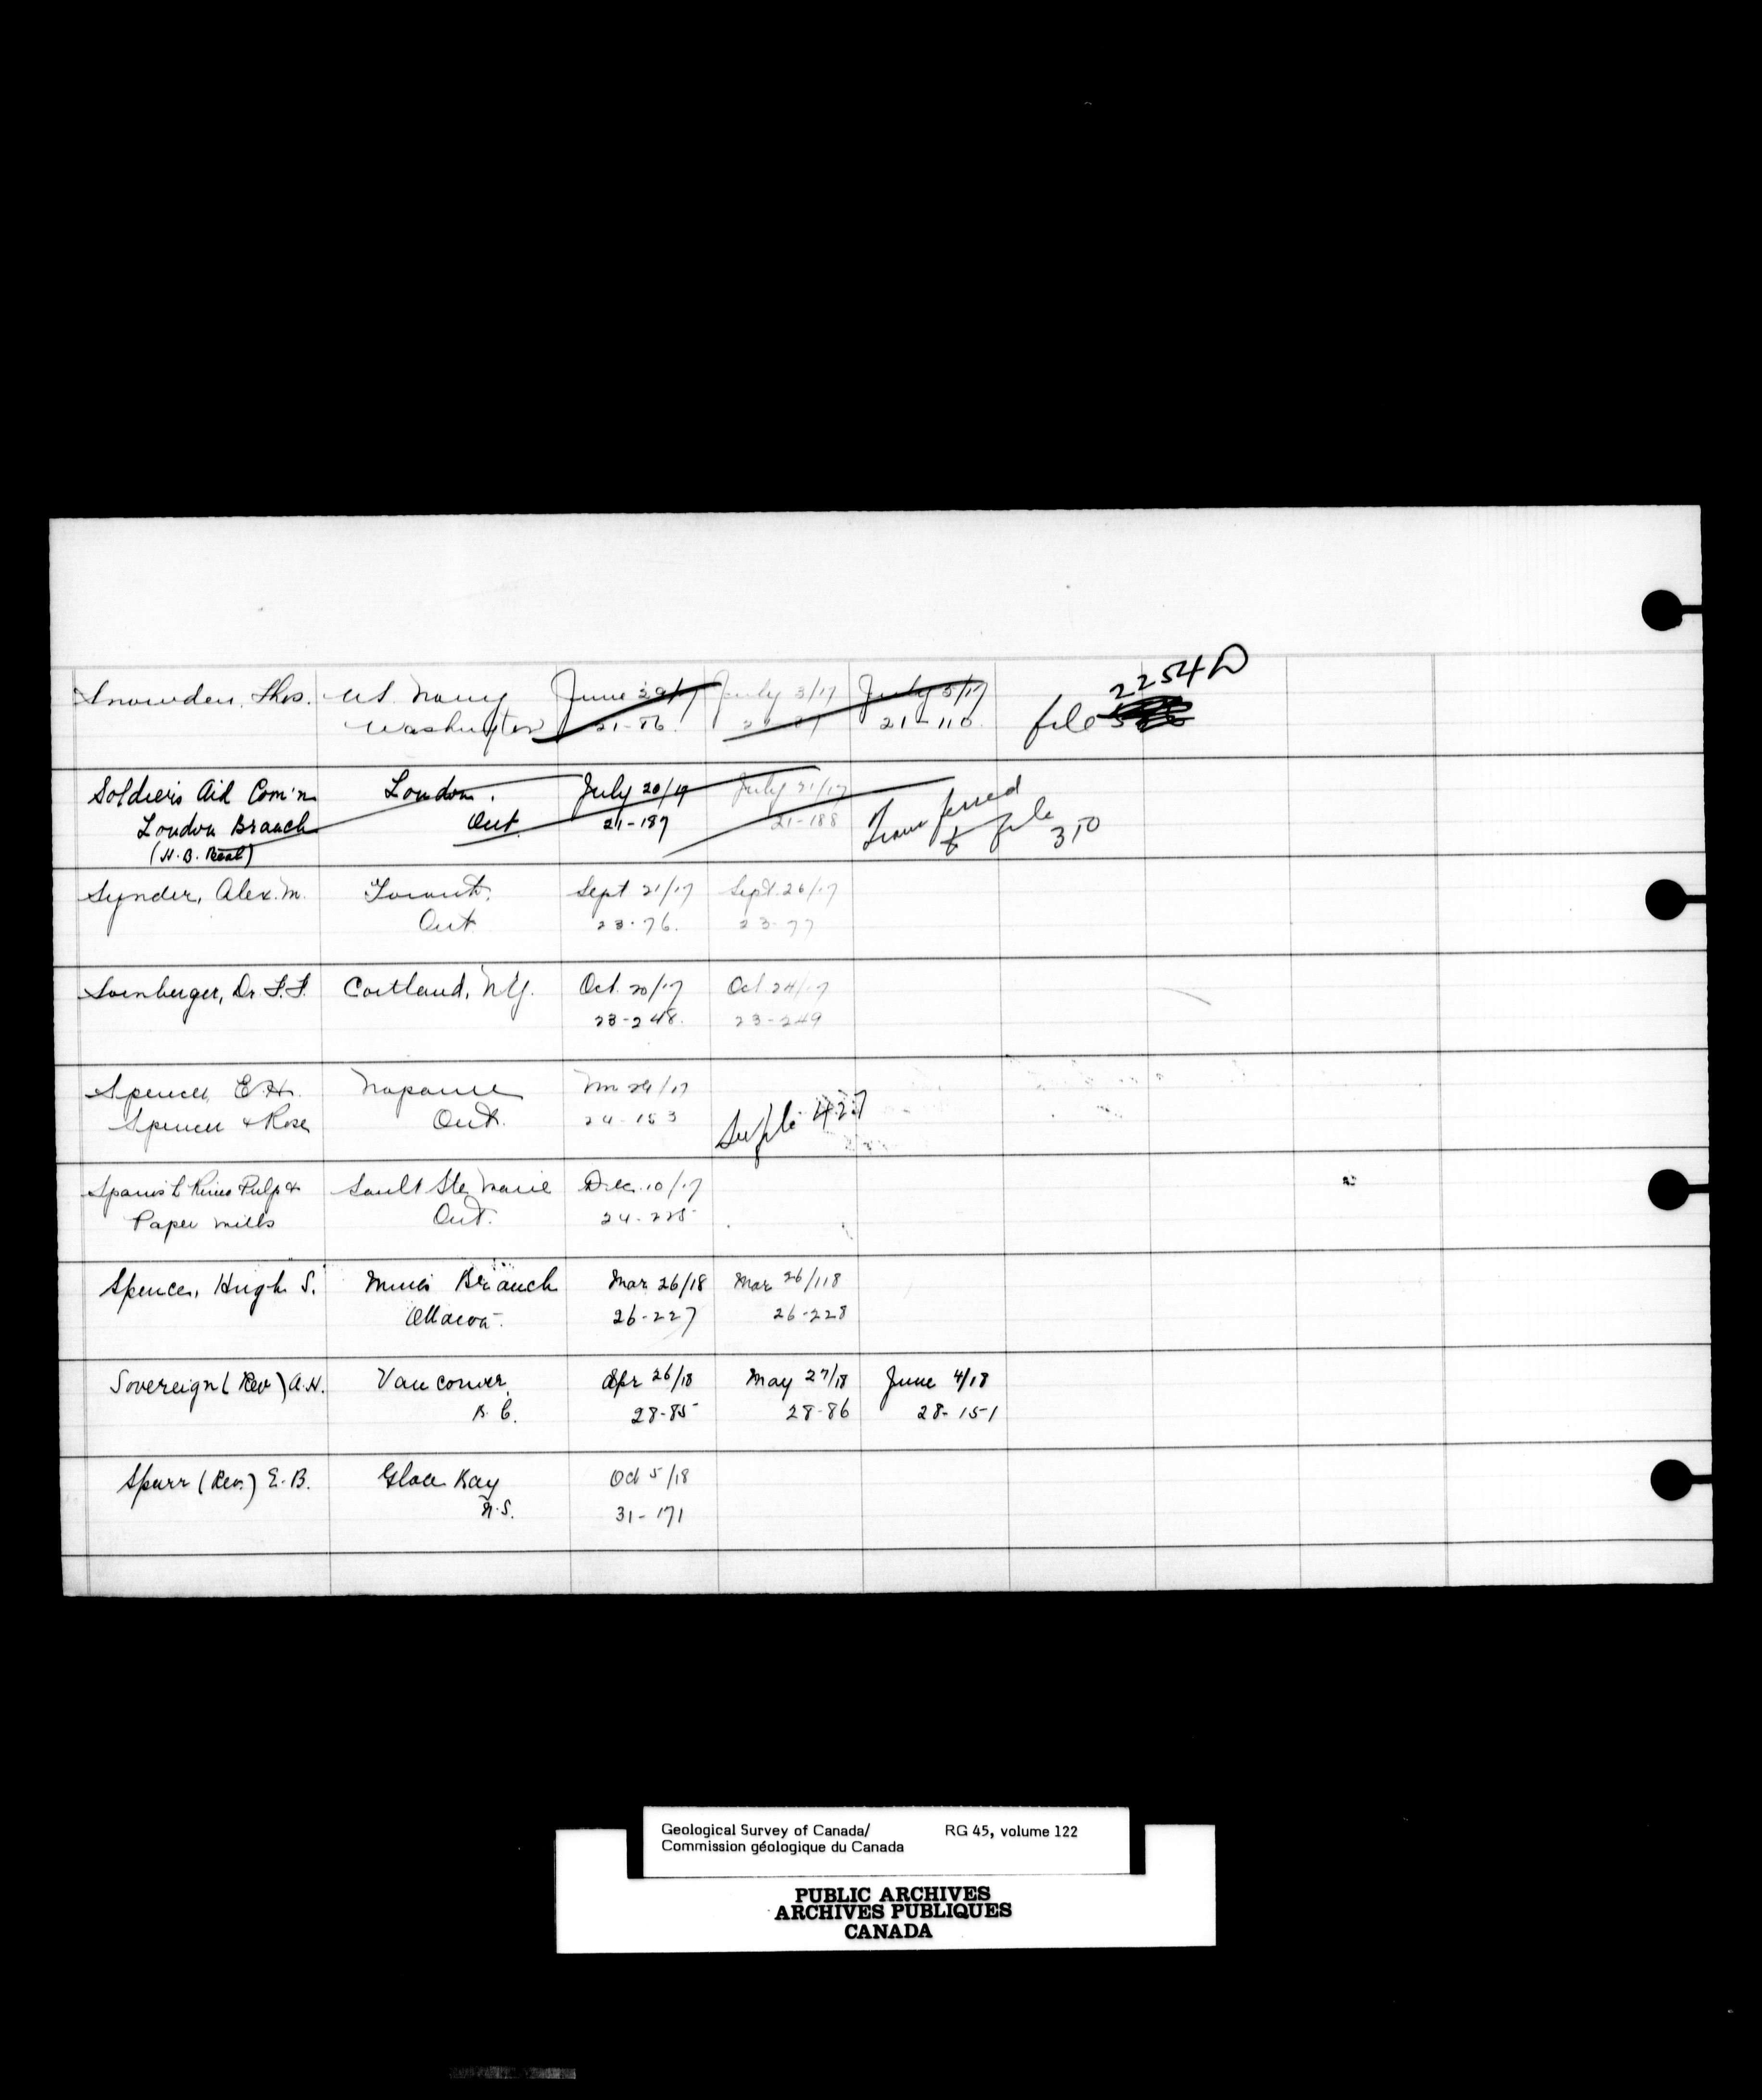 Snowden, Thos. U.S. Navy June 29/17 July 3/17 July 5/17 2254D
Washington 21-86. 21-87 21-110. file
Soldiers Aid Com'n London. July 20/17 July 21/17 Transferred
London Branch Ont. 21-187 21-188 to file 310
(H.B. Beal)
Synder, Alex. M. Toronto, Sept 21/17 Sept. 26/17
Ont. 23-76. 23-77
Sornberger, Dr. F.F. Cortland, N.Y. Oct. 20/17 Oct. 24/17
23-248. 23-249
Spencer, E.H. Napanee 24/17
Spencer & Rose Ont. 24-153 See file 427
Spanish River Pulp & Sault Ste Marie Dec. 10/17
Paper Mills Ont. 24-225
Spence, Hugh S. Mines Branch Mar 26/18 Mar 26/118
Ottawa. 26-227 26-228
Sovereign (Rev) A.H. Vancouver, Apr 26/18 May 27/18 June 4/18
B.C. 28-85 28-86 28-151
Spurr (Rev.) E.B. Glace Bay Oct 5/18
N.S. 31-171
Geological Survey of Canada/ RG 45, volume 122
Commission géologique du Canada
PUBLIC ARCHIVES
ARCHIVES PUBLIQUES
CANADA